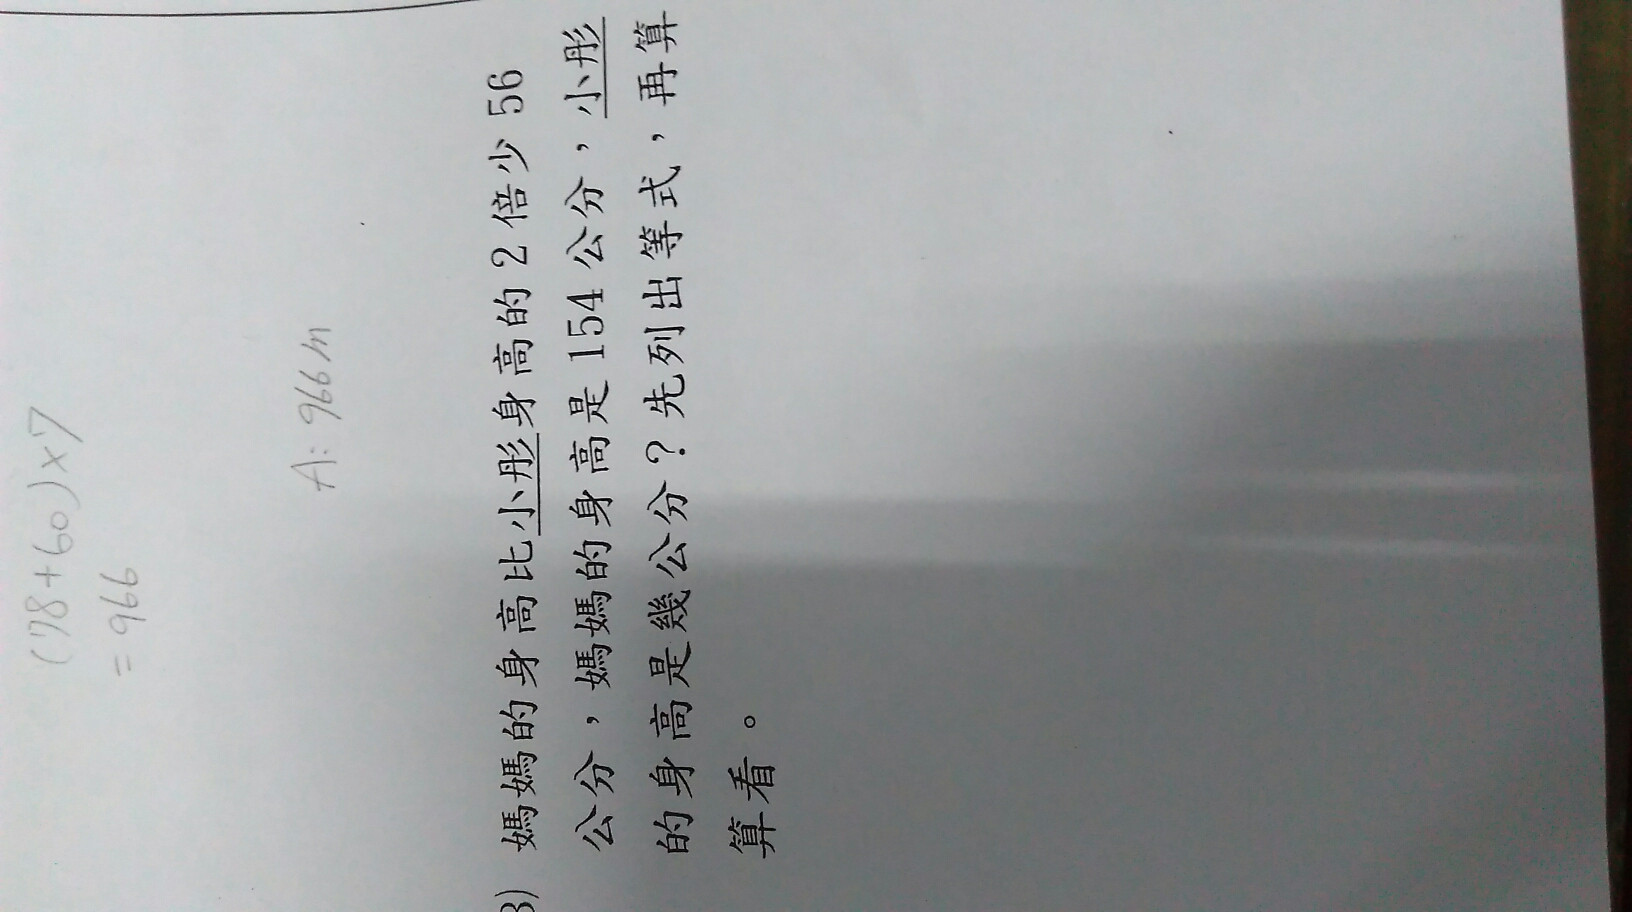 (78+60)×7
=966
A:966m
3) 媽媽的身高比小彤身高的2倍少56
公分，媽媽的身高是154公分，小彤
的身高是幾公分？先列出等式，再算
算看。